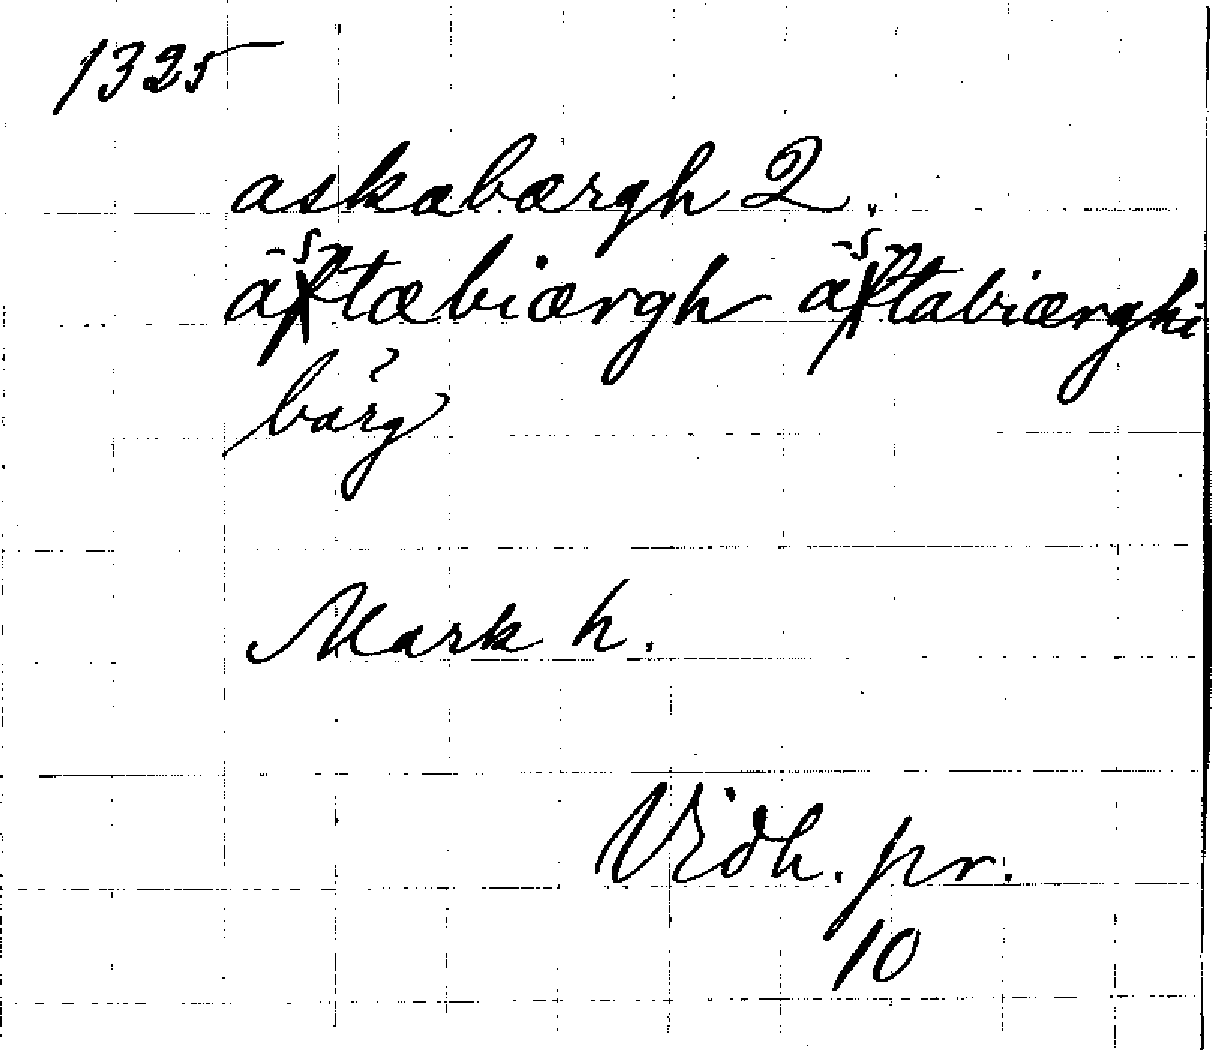 1325
askabærgh 2.
äſtæbiærgh äſtabiærghi
bärg
Mark h.
Vidh. pr.
10